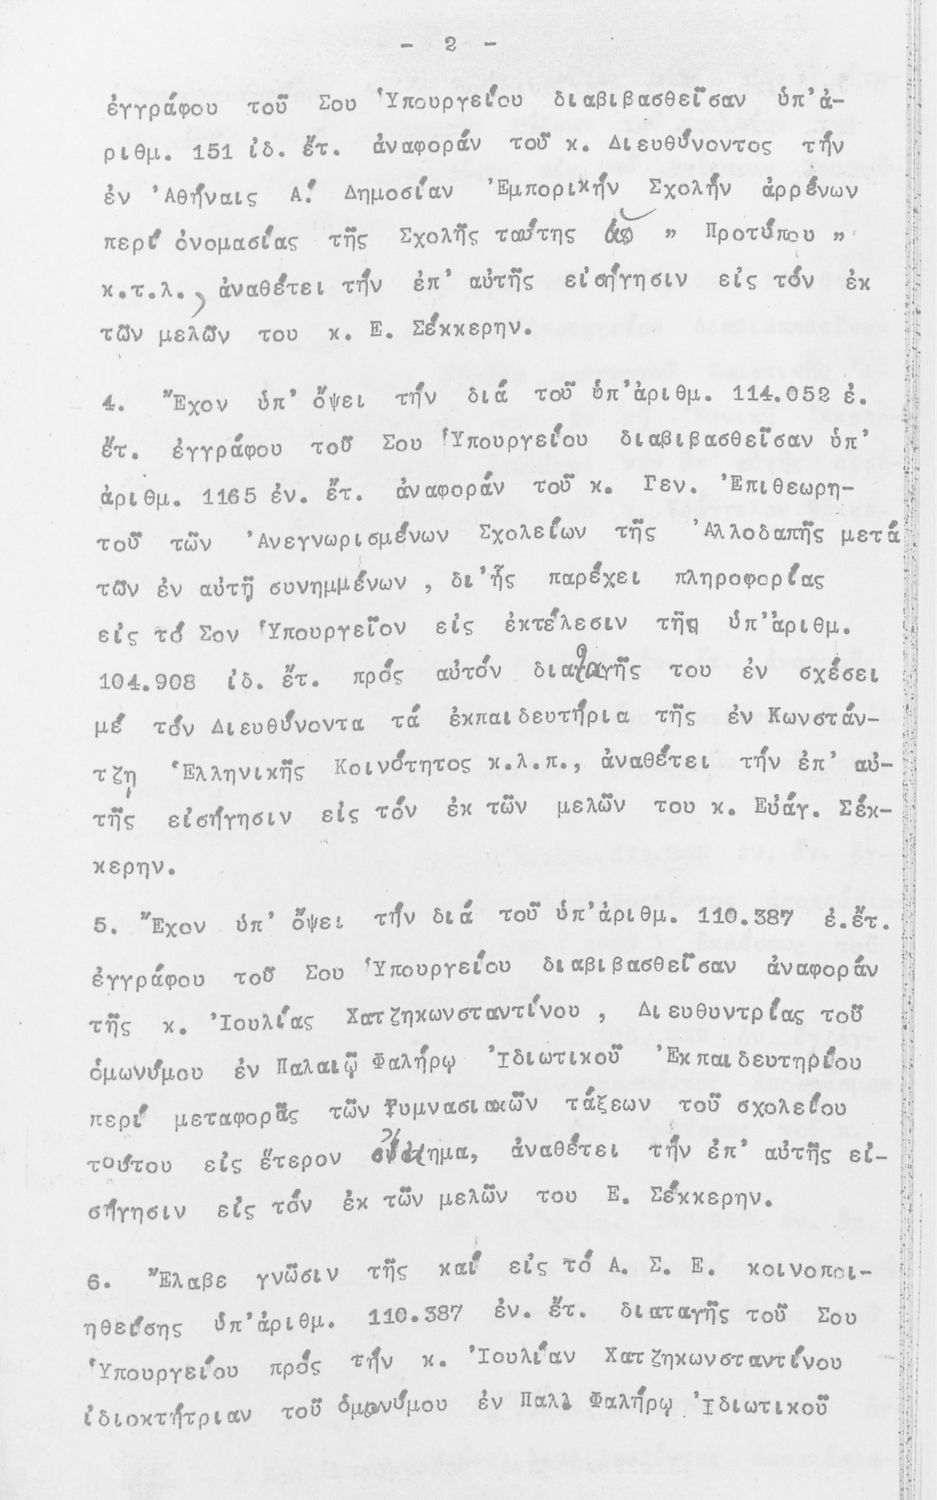 - 2 -
ἐγγράφου τοῦ Σου Ὑπουργείου διαβιβασθεῖσαν ὑπ' ἀ-
ριθμ. 151 ἰδ. ἔτ. ἀναφοράν τοῦ κ. Διευθύνοντος τήν
ἐν Ἀθήναις Α! Δημοσίαν Ἐμπορικήν Σχολήν ἀρρένων
περί ὀνομασίας τῆς Σχολῆς ταύτης ὡς " Προτύπου "
κ.τ.λ., ἀναθέτει τήν ἐπ' αὐτῆς εἰσήγησιν εἰς τόν ἐκ
τῶν μελῶν του κ. Ε. Σέκκερην.
4. Ἔχον ὑπ' ὄψει τήν διά τοῦ ὑπ' ἀριθμ. 114.052 ἐ.
ἔτ. ἐγγράφου τοῦ Σου Ὑπουργείου διαβιβασθεῖσαν ὑπ'
ἀριθμ. 1165 ἐν. ἔτ. ἀναφοράν τοῦ κ. Γεν. Ἐπιθεωρη-
τοῦ τῶν Ἀνεγνωρισμένων Σχολείων τῆς Ἀλλοδαπῆς μετά
τῶν ἐν αὐτῇ συνημμένων , δι' ἧς παρέχει πληροφορίας
εἰς τό Σον Ὑπουργεῖον εἰς ἐκτέλεσιν τῆς ὑπ' ἀριθμ.
104.908 ἰδ. ἔτ. πρός αὐτόν διαταγῆς του ἐν σχέσει
μέ τόν Διευθύνοντα τά ἐκπαιδευτήρια τῆς ἐν Κωνστάν-
τζῃ Ἑλληνικῆς Κοινότητος κ.λ.π., ἀναθέτει τήν ἐπ' αὐ-
τῆς εἰσήγησιν εἰς τόν ἐκ τῶν μελῶν του κ. Εὐάγ. Σέκ-
κερην.
5. Ἔχον ὑπ' ὄψει τήν διά τοῦ ὑπ' ἀριθμ. 110.387 ἐ.ἔτ.
ἐγγράφου τοῦ Σου Ὑπουργείου διαβιβασθεῖσαν ἀναφοράν
τῆς κ. Ἰουλίας Χατζηκωνσταντίνου , Διευθυντρίας τοῦ
ὁμωνύμου ἐν Παλαιῷ Φαλήρῳ Ἰδιωτικοῦ Ἐκπαιδευτηρίου
περί μεταφορᾶς τῶν Γυμνασιακῶν τάξεων τοῦ σχολείου
τούτου εἰς ἕτερον οἴκημα, ἀναθέτει τήν ἐπ' αὐτῆς εἰ-
σήγησιν εἰς τόν ἐκ τῶν μελῶν του Ε. Σέκκερην.
6. Ἔλαβε γνῶσιν τῆς καί εἰς τό Α. Σ. Ε. κοινοποι-
ηθείσης ὑπ' ἀριθμ. 110.387 ἐν. ἔτ. διαταγῆς τοῦ Σου
Ὑπουργείου πρός τήν κ. Ἰουλίαν Χατζηκωνσταντίνου
ἰδιοκτήτριαν τοῦ ὁμωνύμου ἐν Παλ. Φαλήρῳ Ἰδιωτικοῦ